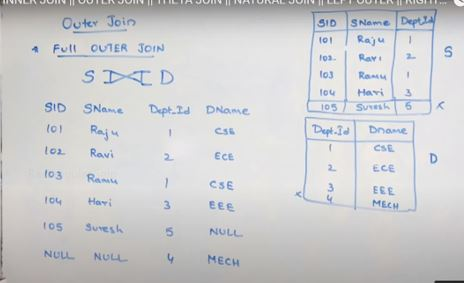 INNER JOIN || OUTER JOIN || THETA JOIN || NATURAL JOIN || LEFT OUTER || RIGHT...
Outer Join
* Full OUTER JOIN
S ⟗ D
SID SName Dept_Id DName
101 Raju 1 CSE
102 Ravi 2 ECE
103 Ramu 1 CSE
104 Hari 3 EEE
105 Suresh 5 NULL
NULL NULL 4 MECH
SID SName Dept_Id
101 Raju 1
102 Ravi 2
103 Ramu 1
104 Hari 3
105 Suresh 5 x
S
Dept_Id Dname
1 CSE
2 ECE
3 EEE
x 4 MECH
D